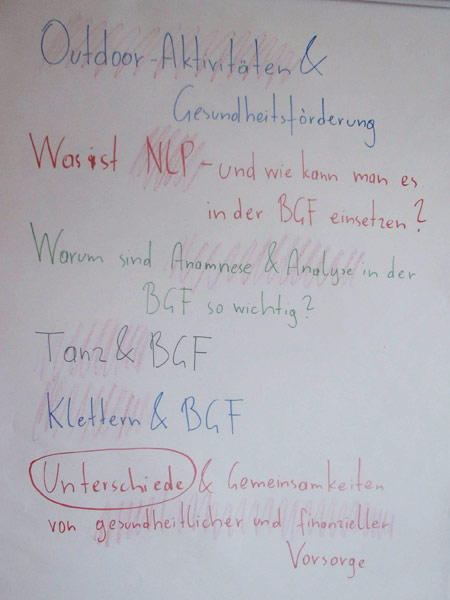 Outdoor-Aktivitäten &
Gesundheitsförderung
Was ist NLP - und wie kann man es
in der BGF einsetzen?
Warum sind Anamnese & Analyse in der
BGF so wichtig?
Tanz & BGF
Klettern & BGF
Unterschiede & Gemeinsamkeiten
von gesundheitlicher und finanzieller
Vorsorge